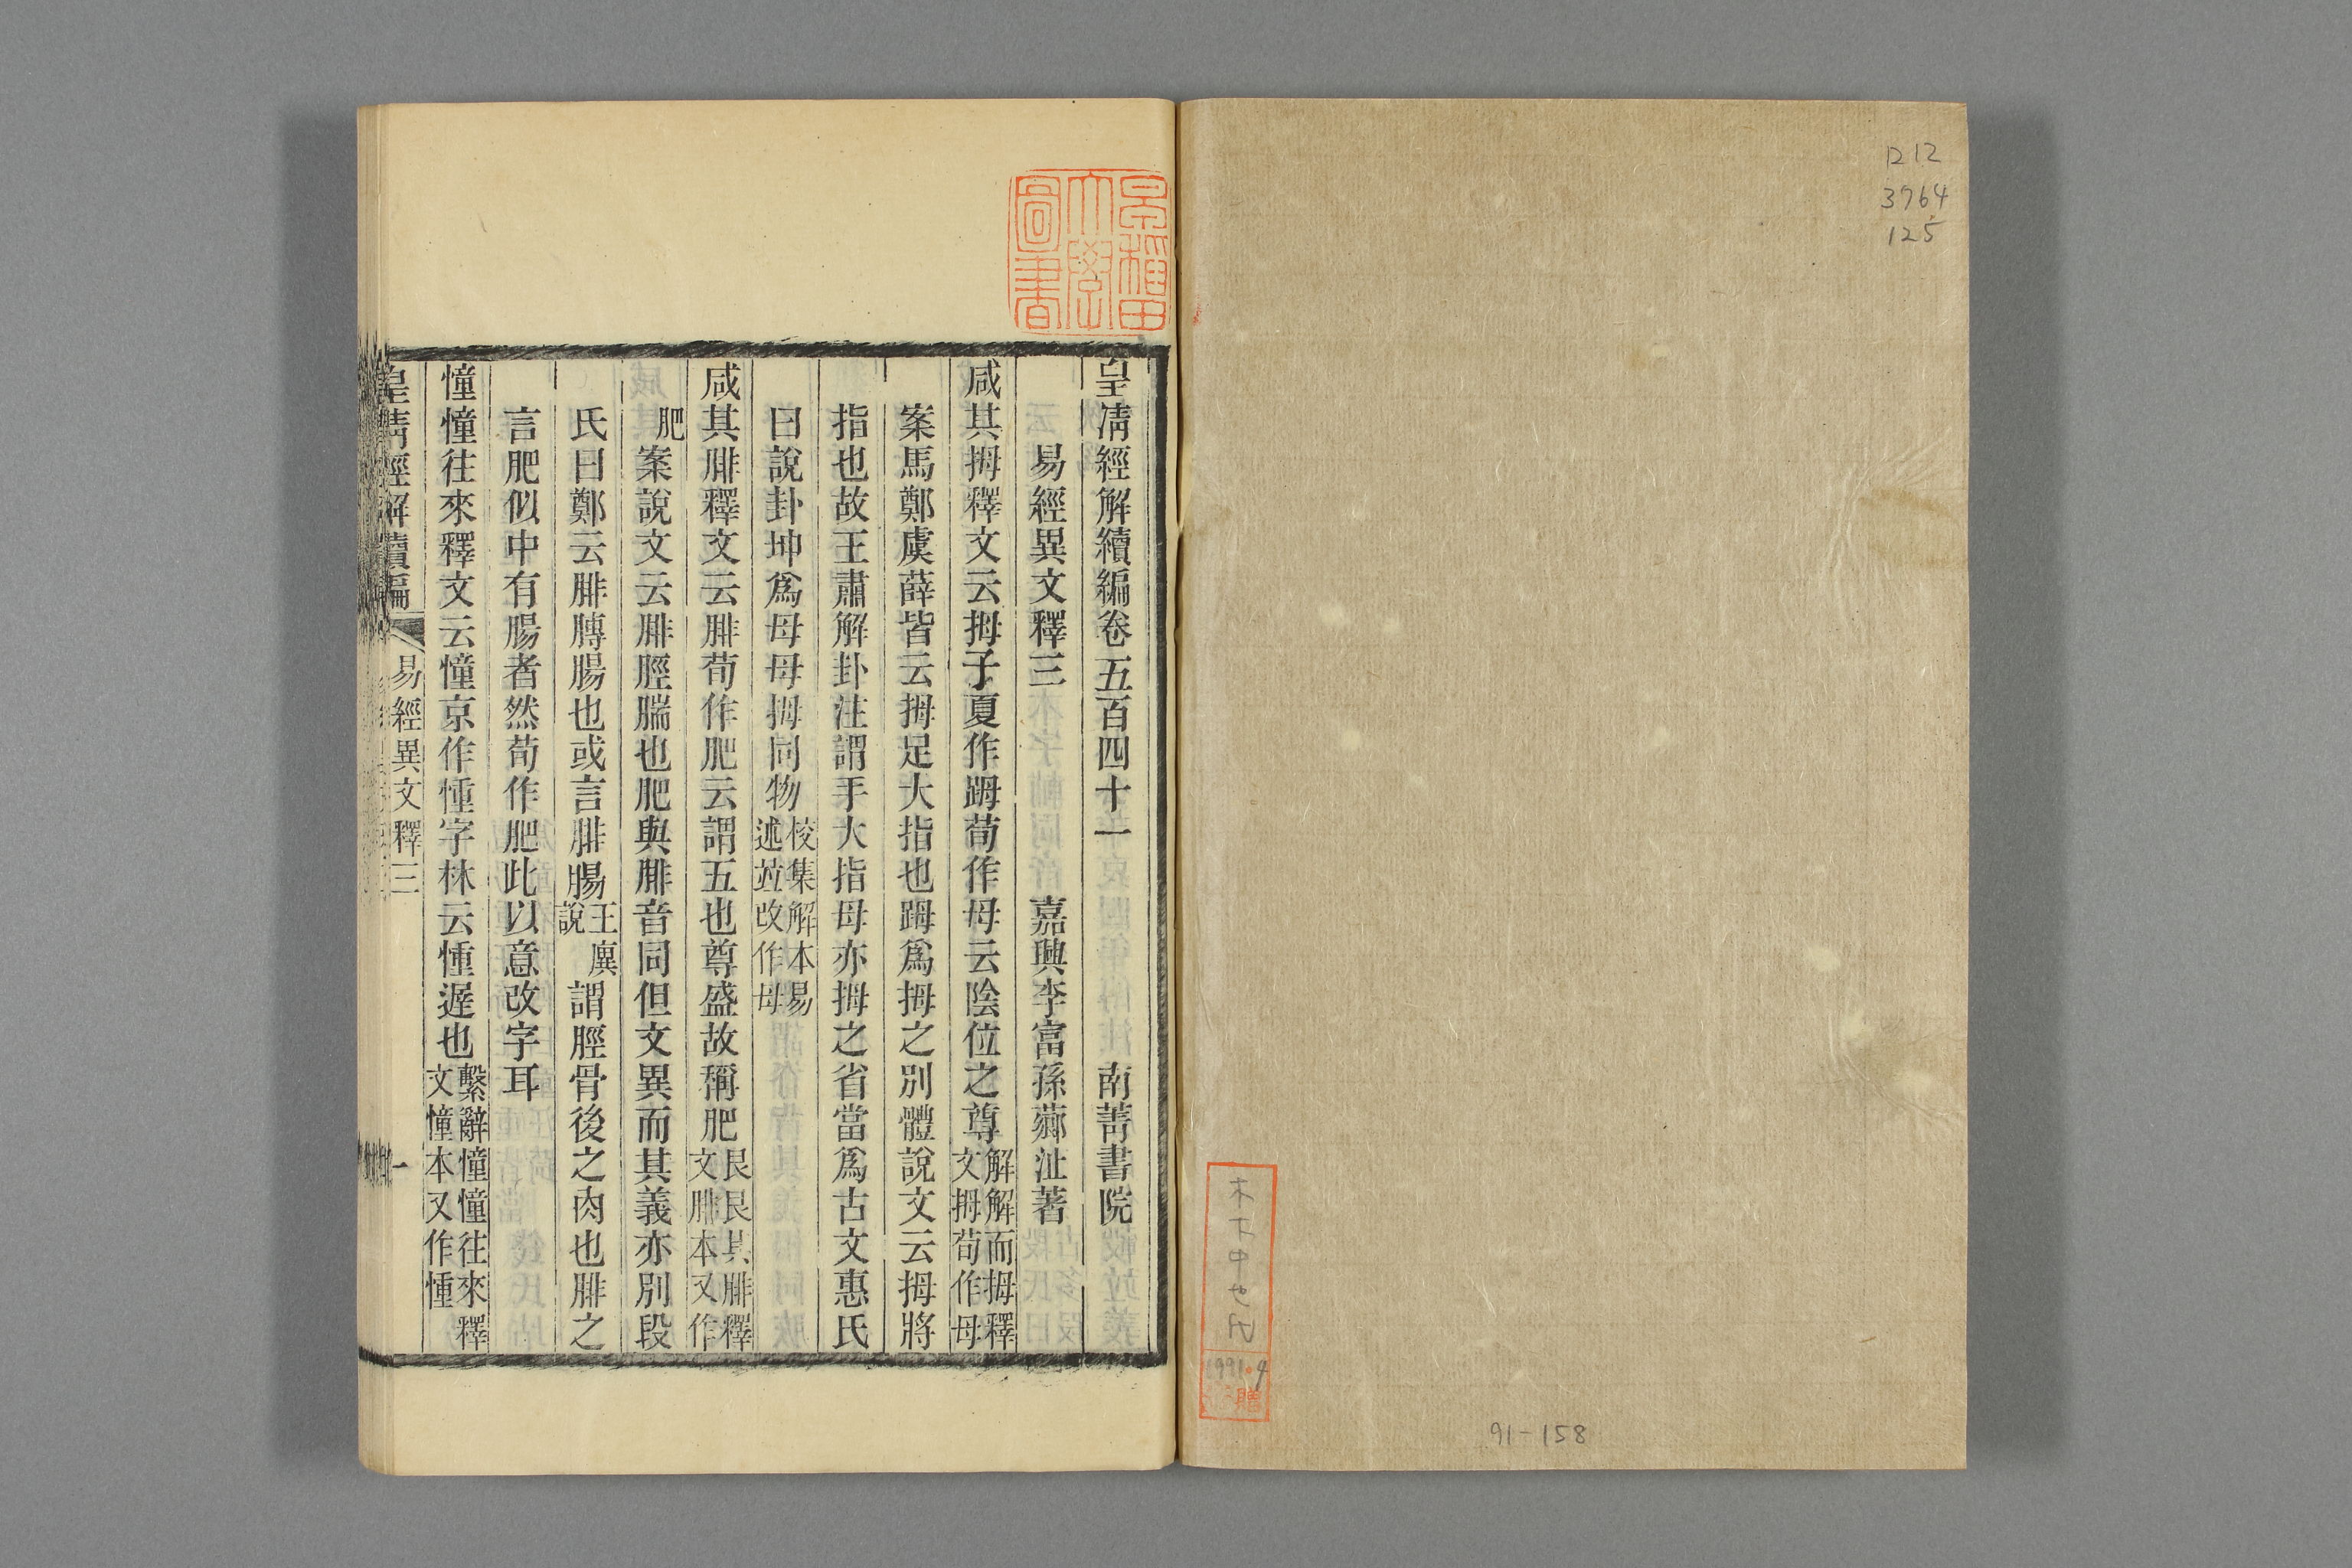 ロ12
3764
125
91-158
1991.4
早稲田大學圖書
皇清經解續編卷五百四十一 南菁書院
易經異文釋三 嘉興李富孫薌沚著
咸其拇釋文云拇子夏作䠧荀作母云陰位之尊解解而拇釋文拇荀作母
案馬鄭虞薛皆云拇足大指也䠧爲拇之別體說文云拇將
指也故王肅解卦注謂手大指母亦拇之省當爲古文惠氏
曰說卦坤爲母母拇同物校集解本易述並改作母
咸其腓釋文云腓荀作肥云謂五也尊盛故稱肥艮艮其腓釋文腓本又作
肥案說文云腓脛腨也肥與腓音同但文異而其義亦別段
氏曰鄭云腓膞腸也或言腓腸王廙說謂脛骨後之肉也腓之
言肥似中有腸者然荀作肥此以意改字耳
憧憧往來釋文云憧京作㣫字林云㣫遲也繫辭憧憧往來釋文憧本又作㣫
皇清經解續編 易經異文釋三 一